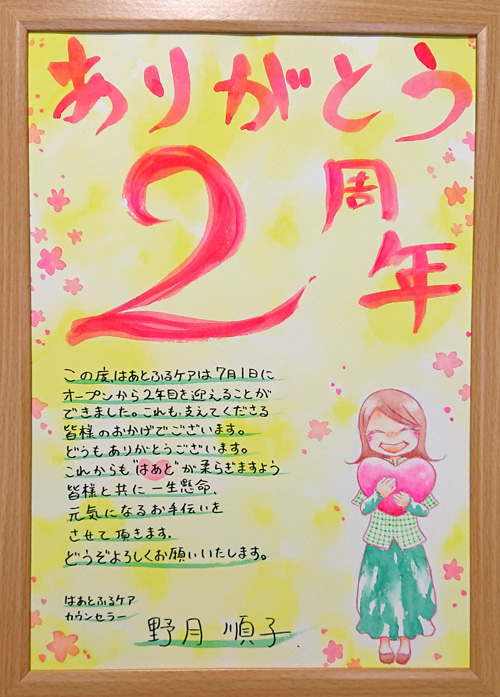 ありがとう
2周年
この度、はあとふるケアは7月1日に
オープンから2年目を迎えることが
できました。これも支えてくださる
皆様のおかげでございます。
どうもありがとうございます。
これからも"はあと"が柔らぎますよう
皆様と共に一生懸命、
元気になるお手伝いを
させて頂きます。
どうぞよろしくお願いいたします。
はあとふるケア
カウンセラー
野月 順子